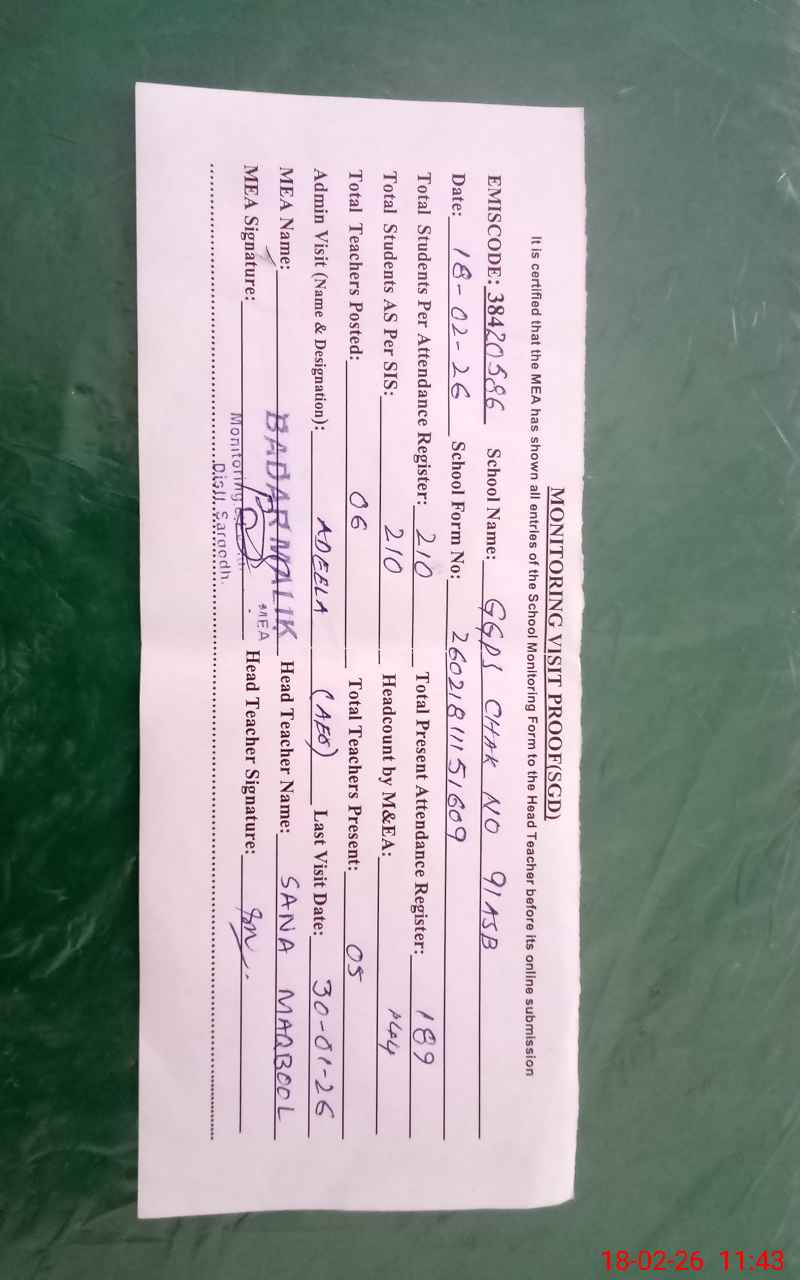 MONITORING VISIT PROOF(SGD)
It is certified that the MEA has shown all entries of the School Monitoring Form to the Head Teacher before its online submission
EMISCODE: 38420586 School Name: GGPS CHAK NO 91ASB
Date: 18-02-26 School Form No: 26021811151609
Total Students Per Attendance Register: 210 Total Present Attendance Register: 189
Total Students AS Per SIS: 210 Headcount by M&EA: 144
Total Teachers Posted: 06 Total Teachers Present: 05
Admin Visit (Name & Designation): ADEELA (AEO) Last Visit Date: 30-01-26
MEA Name: BADAR MALIK MEA Head Teacher Name: SANA MAQBOOL
MEA Signature: Monitoring Head Teacher Signature:
Distt. Sargodh.
18-02-26 11:43